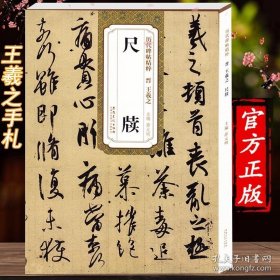 官方正版
历代碑帖精粹 晋 王羲之
尺牍
羲之頓首喪亂之極
荼毒追
慕摧絕
痛貫心肝痛當
雖即脩復未獲
王羲之手札